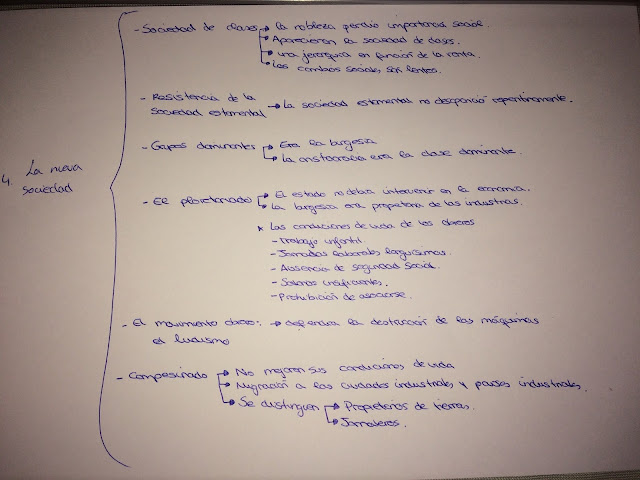 4. La nueva sociedad
- Sociedad de clases → La nobleza perdió importancia social.
→ Aparecieron la sociedad de clases.
→ una jerarquía en función de la renta.
→ Los cambios sociales, son lentos.
- Resistencia de la sociedad estamental → La sociedad estamental no desapareció repentinamente.
- Grupos dominantes → Era la burgesía
→ La aristocracia era la clase dominante.
- El ploretariado → El estado no debía intervenir en la economía.
→ La burgesía era propietaria de las industrias.
* Las condiciones de vida de los obreros
- Trabajo infantil.
- Jornadas laborales larguísimas.
- Ausencia de seguridad social.
- Salarios insuficientes.
- Prohibición de asociarse.
- El movimiento obrero: → defendía la destrucción de las máquinas
el ludismo
- Campesinado → No mejoran sus condiciones de vida
→ Migración a las ciudades industriales y países industriales.
→ Se distinguen → Propietarios de tierras.
→ Jornaleros.